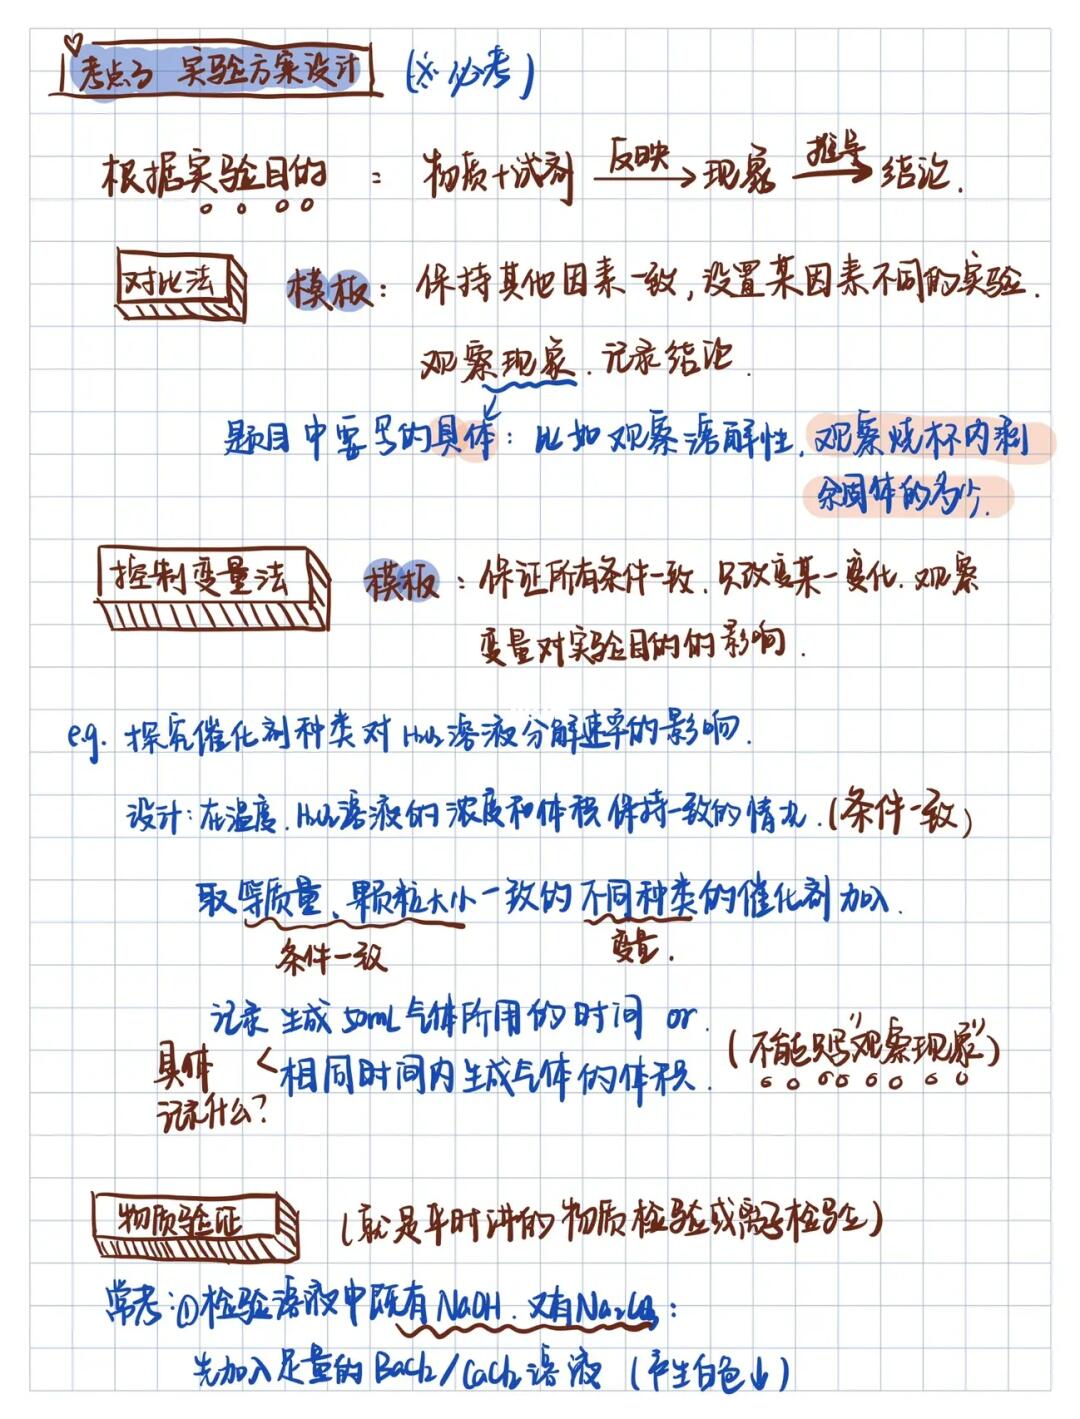 考点3 实验方案设计 (※必考)
根据实验目的： 物质+试剂 反映→ 现象 推导→ 结论.
对比法 模板：保持其他因素一致,设置某因素不同的实验.
观察现象.记录结论.
题目中要写的具体：比如观察溶解性,观察烧杯内剩
余固体的多少.
控制变量法 模板：保证所有条件一致.只改变某一变化.观察
变量对实验目的的影响.
e.g. 探究催化剂种类对H₂O₂溶液分解速率的影响.
设计:在温度.H₂O₂溶液的浓度和体积保持一致的情况.(条件一致)
取等质量、颗粒大小一致的不同种类的催化剂加入.
条件一致 变量.
记录生成50mL气体所用的时间 or.
具体 < 相同时间内生成气体的体积. (不能只写"观察现象")
记录什么?
物质验证 (就是平时讲的物质检验或离子检验)
常考:①检验溶液中既有NaOH.又有Na₂CO₃:
先加入足量的BaCl₂/CaCl₂溶液 (产生白色↓)